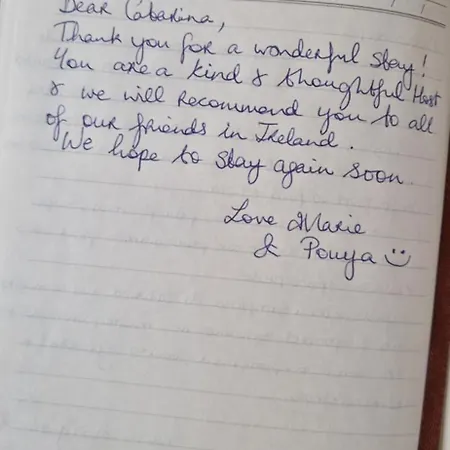 Dear Catarina,
Thank you for a wonderful stay!
You are a kind & thoughtful Host
& we will recommend you to all
of our friends in Ireland.
We hope to stay again soon.
Love Marie
& Pouya